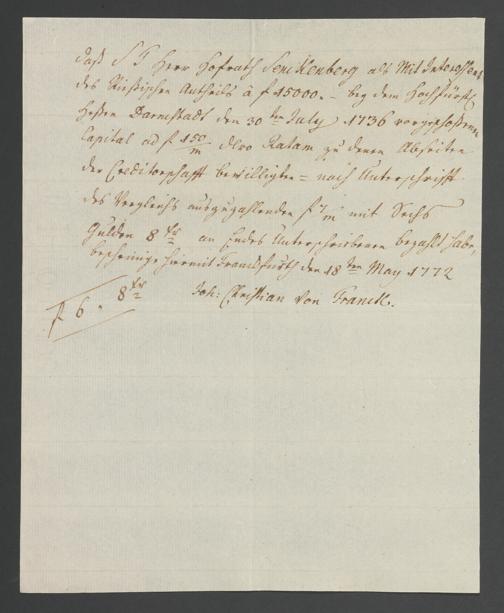 Daß S T Herr Hofrath Senckenberg als Mit Interessent
des Rießischen Antheils à f 15000. – bey dem Hochfürstl
Heßen Darmstadt den 30 ten July 1736 vorgeschoßenen
Capital ad f 150/m dero Ratam zu denen Abseiten
der Creditorschafft bewilligten = nach Unterschrifft
des Vergleichs auszuzahlenden f /m mit Sechs
Gulden 8 xr an Endes Unterschriebenen bezahlt habe,
bescheinige hiermit Franckfurth den 18 ten May 1772
f 6. 8 xr Joh: Christian von Franck.